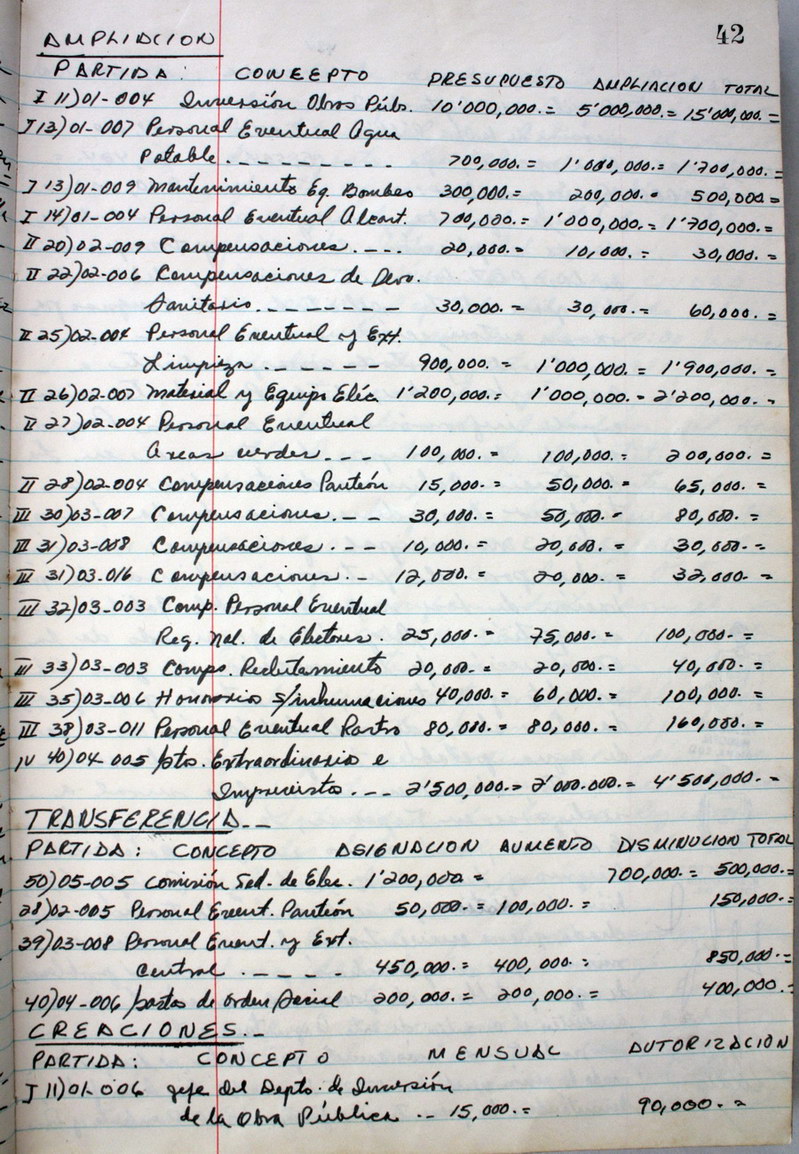 42
AMPLIACION
PARTIDA: CONCEPTO PRESUPUESTO AMPLIACION TOTAL
I 11)01-004 Inversión Obras Púb. 10'000,000.= 5'000,000.= 15'000,000.=
I 13)01-007 Personal Eventual Agua
Potable.-------- 700,000.= 1'000,000.= 1'700,000.=
I 13)01-009 Mantenimiento Eq. Bombeo 300,000.= 200,000.= 500,000=
I 14)01-004 Personal Eventual Alcant. 700,000.= 1'000,000.= 1'700,000.=
II 20)02-009 Compensaciones.--- 20,000.= 10,000.= 30,000.=
II 22)02-006 Compensaciones de Derv.
Sanitario.------- 30,000.= 30,000.= 60,000.=
II 25)02-004 Personal Eventual y Ext.
Limpieza.------ 900,000.= 1'000,000.= 1'900,000.=
II 26)02-007 Material y Equipo Eléc. 1'200,000.= 1'000,000.= 2'200,000.=
II 27)02-004 Personal Eventual
Areas verdes.--- 100,000.= 100,000.= 200,000.=
II 28)02-004 Compensaciones Panteón 15,000.= 50,000.= 65,000.=
III 30)03-007 Compensaciones.-- 30,000.= 50,000.= 80,000.=
III 31)03-008 Compensaciones.--- 10,000.= 20,000.= 30,000.=
III 31)03-016 Compensaciones.-- 12,000.= 20,000.= 32,000.=
III 32)03-003 Comp. Personal Eventual
Reg. Nal. de Electores. 25,000.= 75,000.= 100,000.=
III 33)03-003 Comps. Reclutamiento 20,000.= 20,000.= 40,000.=
III 35)03-006 Honorario s/inhumaciones 40,000.= 60,000.= 100,000.=
III 38)03-011 Personal Eventual Rastro 80,000.= 80,000.= 160,000.=
IV 40)04-005 /stos. Extraordinario e
Imprevisto.--- 2'500,000.= 2'000.000.= 4'500,000.=
TRANSFERENCIA.--
PARTIDA: CONCEPTO ASIGNACION AUMENTO DISMINUCION TOTAL
50)05-005 Comisión Fed. de Elec. 1'200,000= 700,000.= 500,000.=
28)02-005 Personal Event. Panteón 50,000.= 100,000.= 150,000.=
39)03-008 Personal Event. y Ext.
Central.----- 450,000.= 400,000.= 850,000.=
40)04-006 /gastos de orden Social 200,000.= 200,000.= 400,000.=
CREACIONES.--
PARTIDA: CONCEPTO MENSUAL AUTORIZACION
I 11)01-006 jefe del Depto. de Inversión
de la Obra Pública.-- 15,000.= 90,000.=